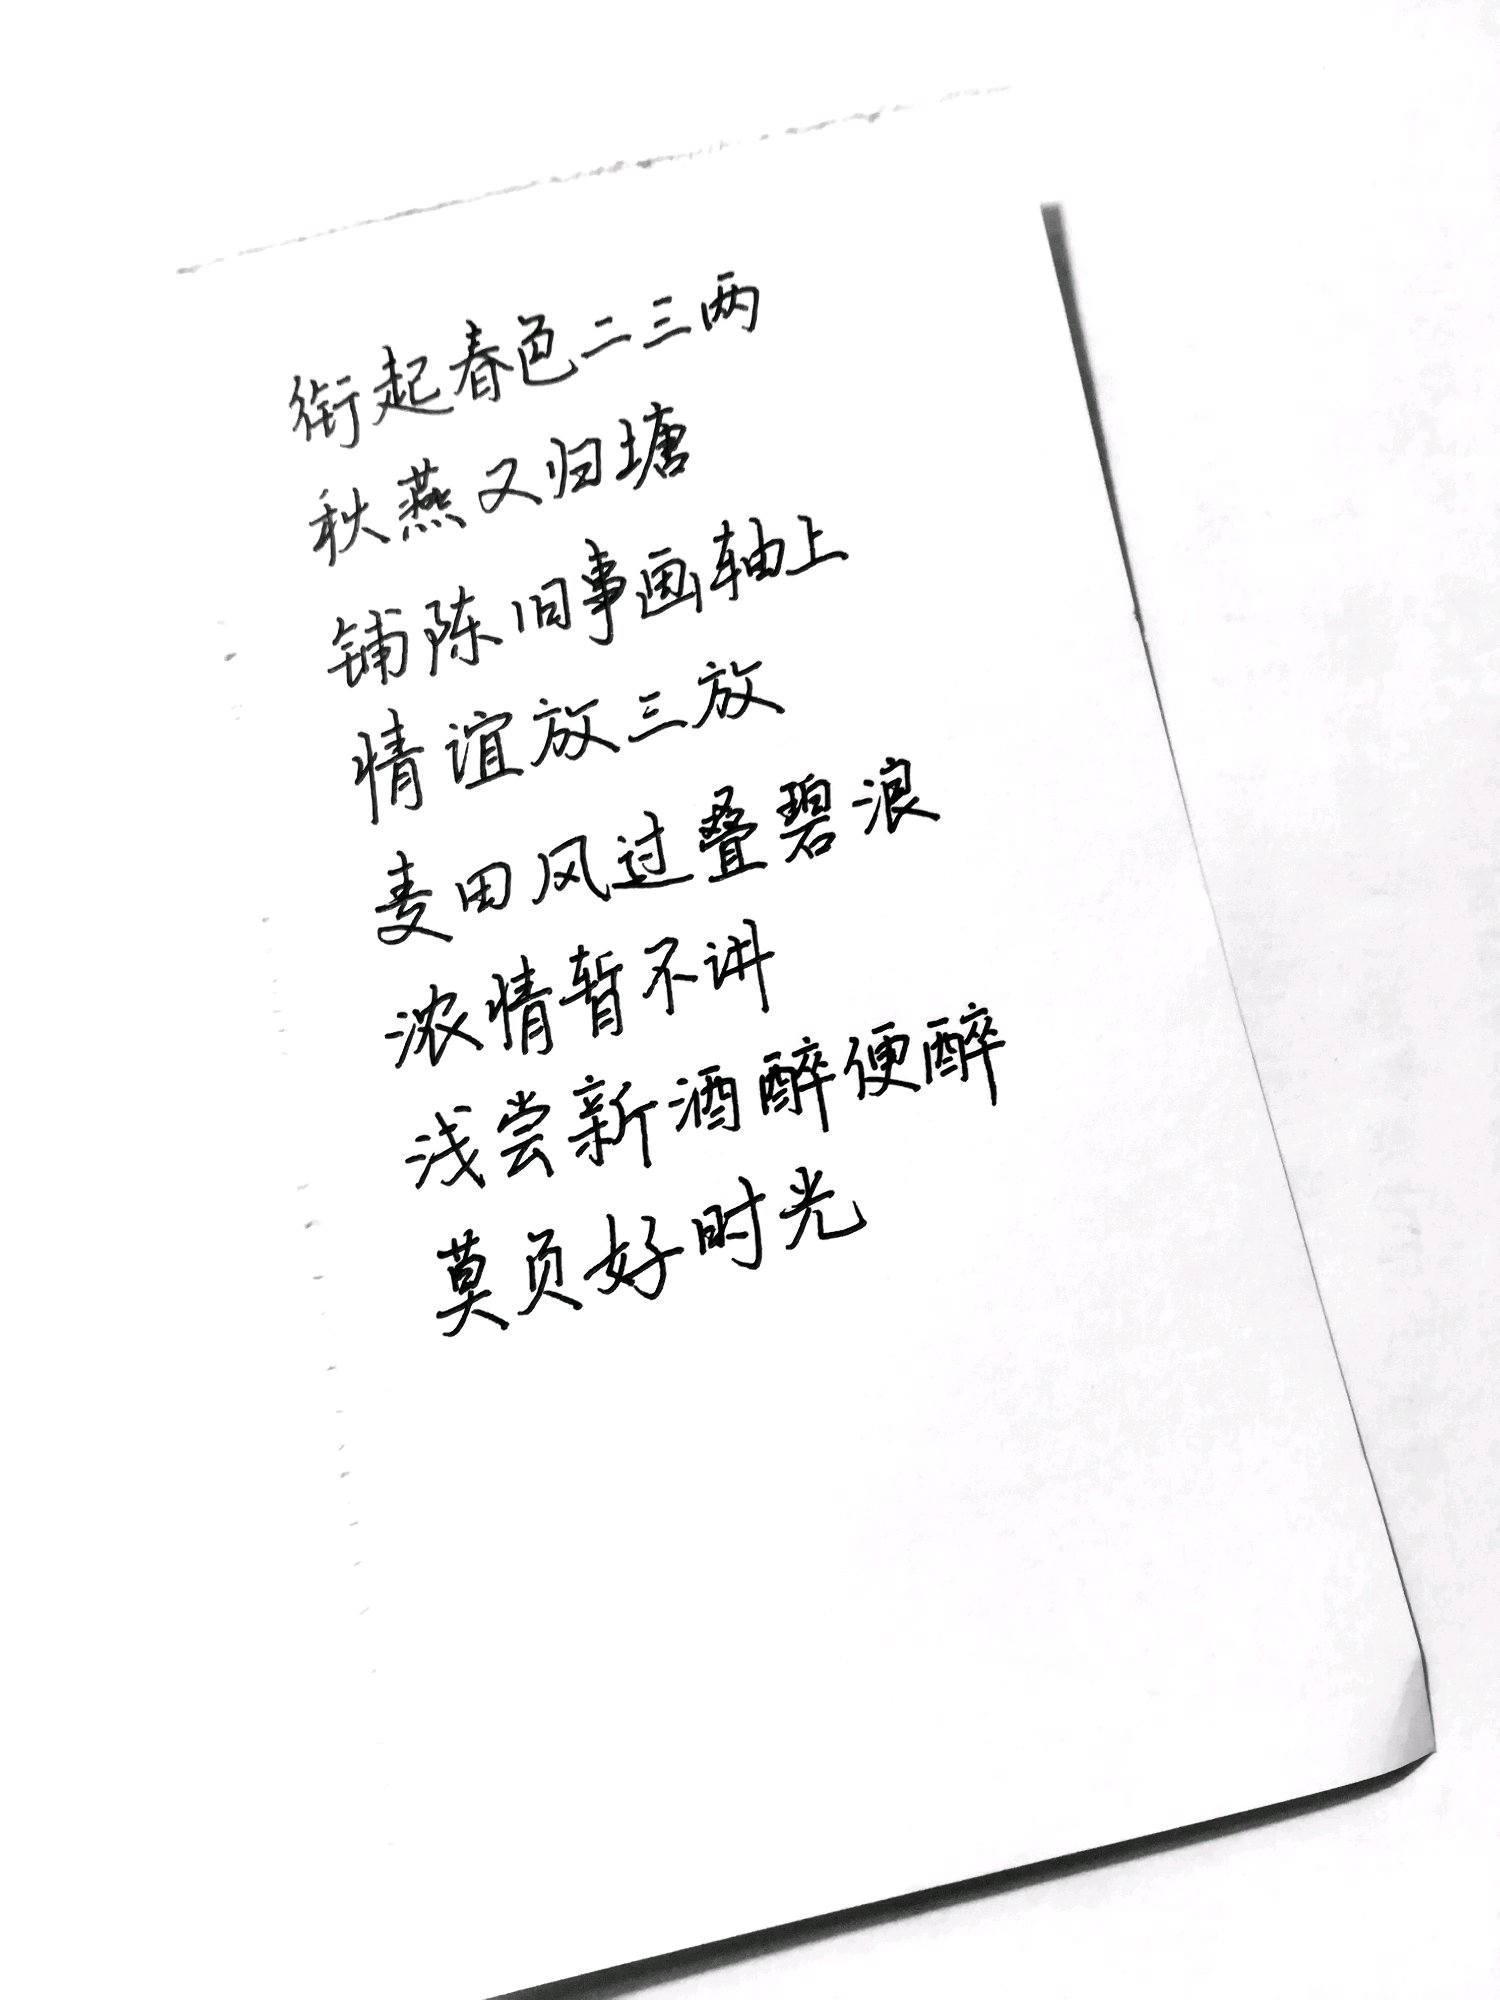 衔起春色二三两
秋燕又归塘
铺陈旧事画轴上
情谊放三放
麦田风过叠碧浪
浓情暂不讲
浅尝新酒醉便醉
莫负好时光